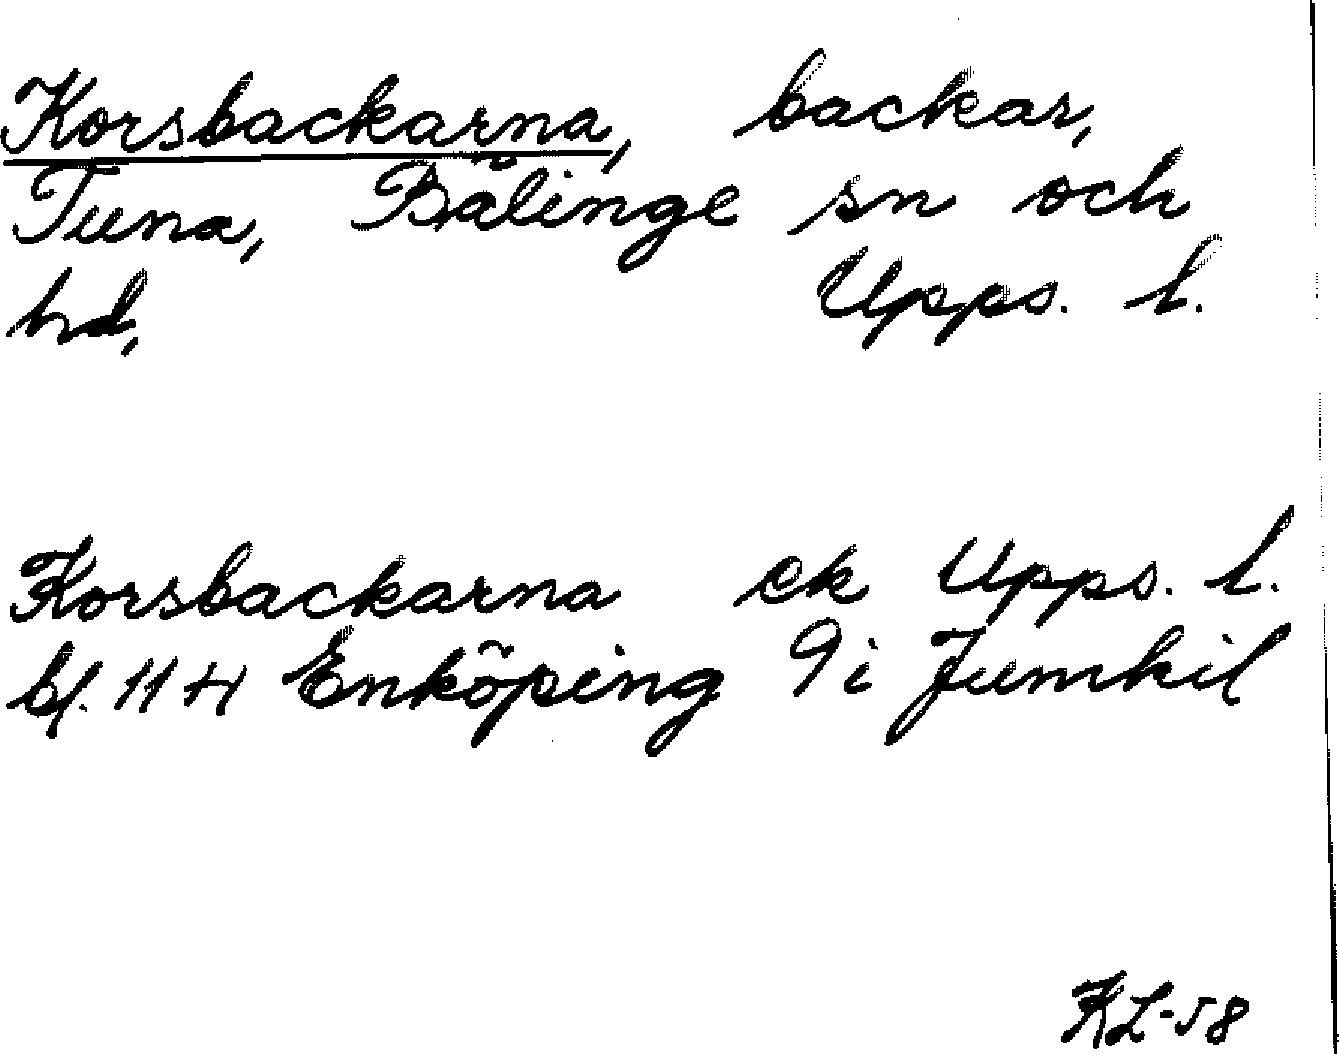 Korsbackarna, backar,
Tuna, Bälinge sn och
hd, Upps. l.
Korsbackarna ek Upps. l.
bl. 114 Enköping 9i Jumkil
KL-58